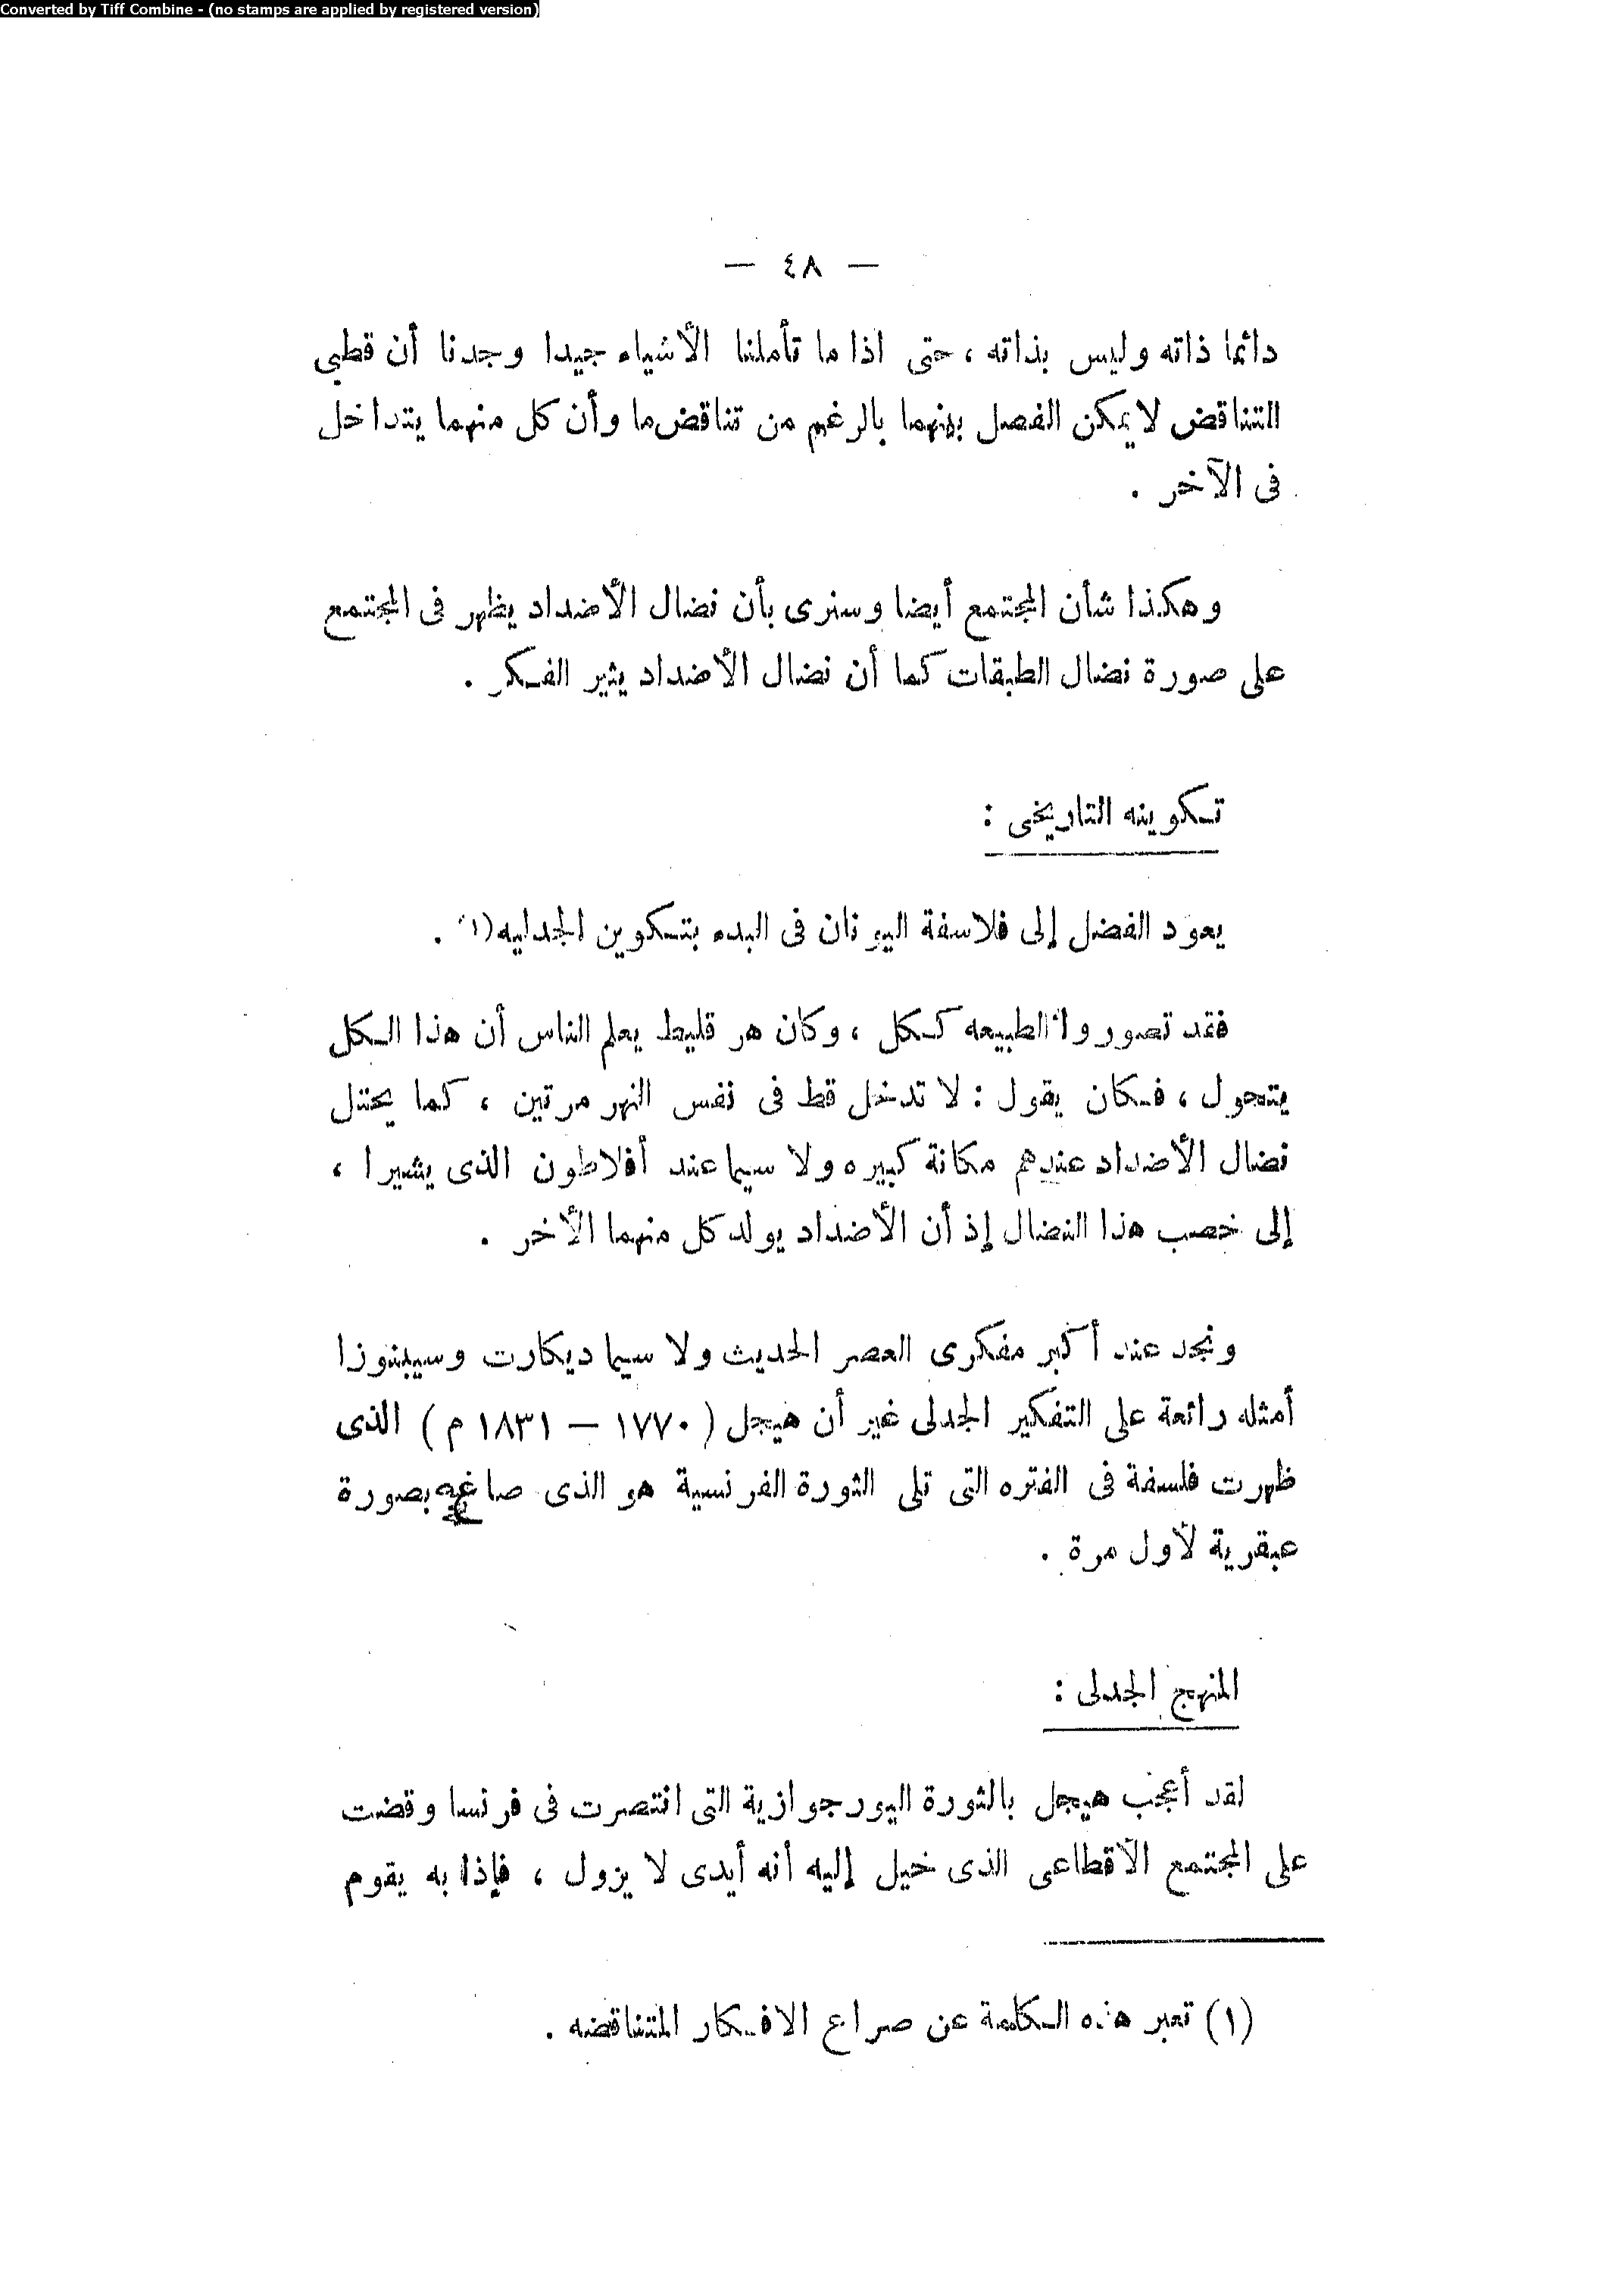 Converted by Tiff Combine - (no stamps are applied by registered version)
— ٤٨ —
دائما ذاته وليس بذاته ، حتى اذا ما تأملنا الأشياء جيدا وجدنا أن قطبى
التناقض لا يمكن الفصل بينهما بالرغم من تناقضهما وأن كل منهما يتداخل
فى الآخر .
وهكذا شأن المجتمع أيضا وسنرى بأن نضال الأضداد يظهر فى المجتمع
على صورة نضال الطبقات كما أن نضال الأضداد يثير الفكر .
تكوينه التاريخى :
يعود الفضل إلى فلاسفة اليونان فى البدء بتكوين الجدليه(١) .
فقد تصوروا الطبيعه ككل ، وكان هرقليط يعلم الناس أن هذا الكل
يتحول ، فكان يقول : لا تدخل قط فى نفس النهر مرتين ، كما يحتل
نضال الأضداد عندهم مكانة كبيره ولا سيما عند أفلاطون الذى يشيرا ،
إلى خصب هذا النضال إذ أن الأضداد يولد كل منهما الأخر .
ونجد عند أكبر مفكرى العصر الحديث ولا سيما ديكارت وسيبنوزا
أمثله رائعة على التفكير الجدلى غير أن هيجل ( ١٧٧٠ — ١٨٣١ م ) الذى
ظهرت فلسفة فى الفتره التى تلى الثورة الفرنسية هو الذى صاغه بصورة
عبقرية لأول مرة .
المنهج الجدلى :
لقد أعجب هيجل بالثورة اليورجوازية التى انتصرت فى فرنسا وقضت
على المجتمع الآقطاعى الذى خيل إليه أنه أيدى لا يزول ، فإذا به يقوم
(١) تعبر هذه الكلمة عن صراع الافكار المتناقضه .